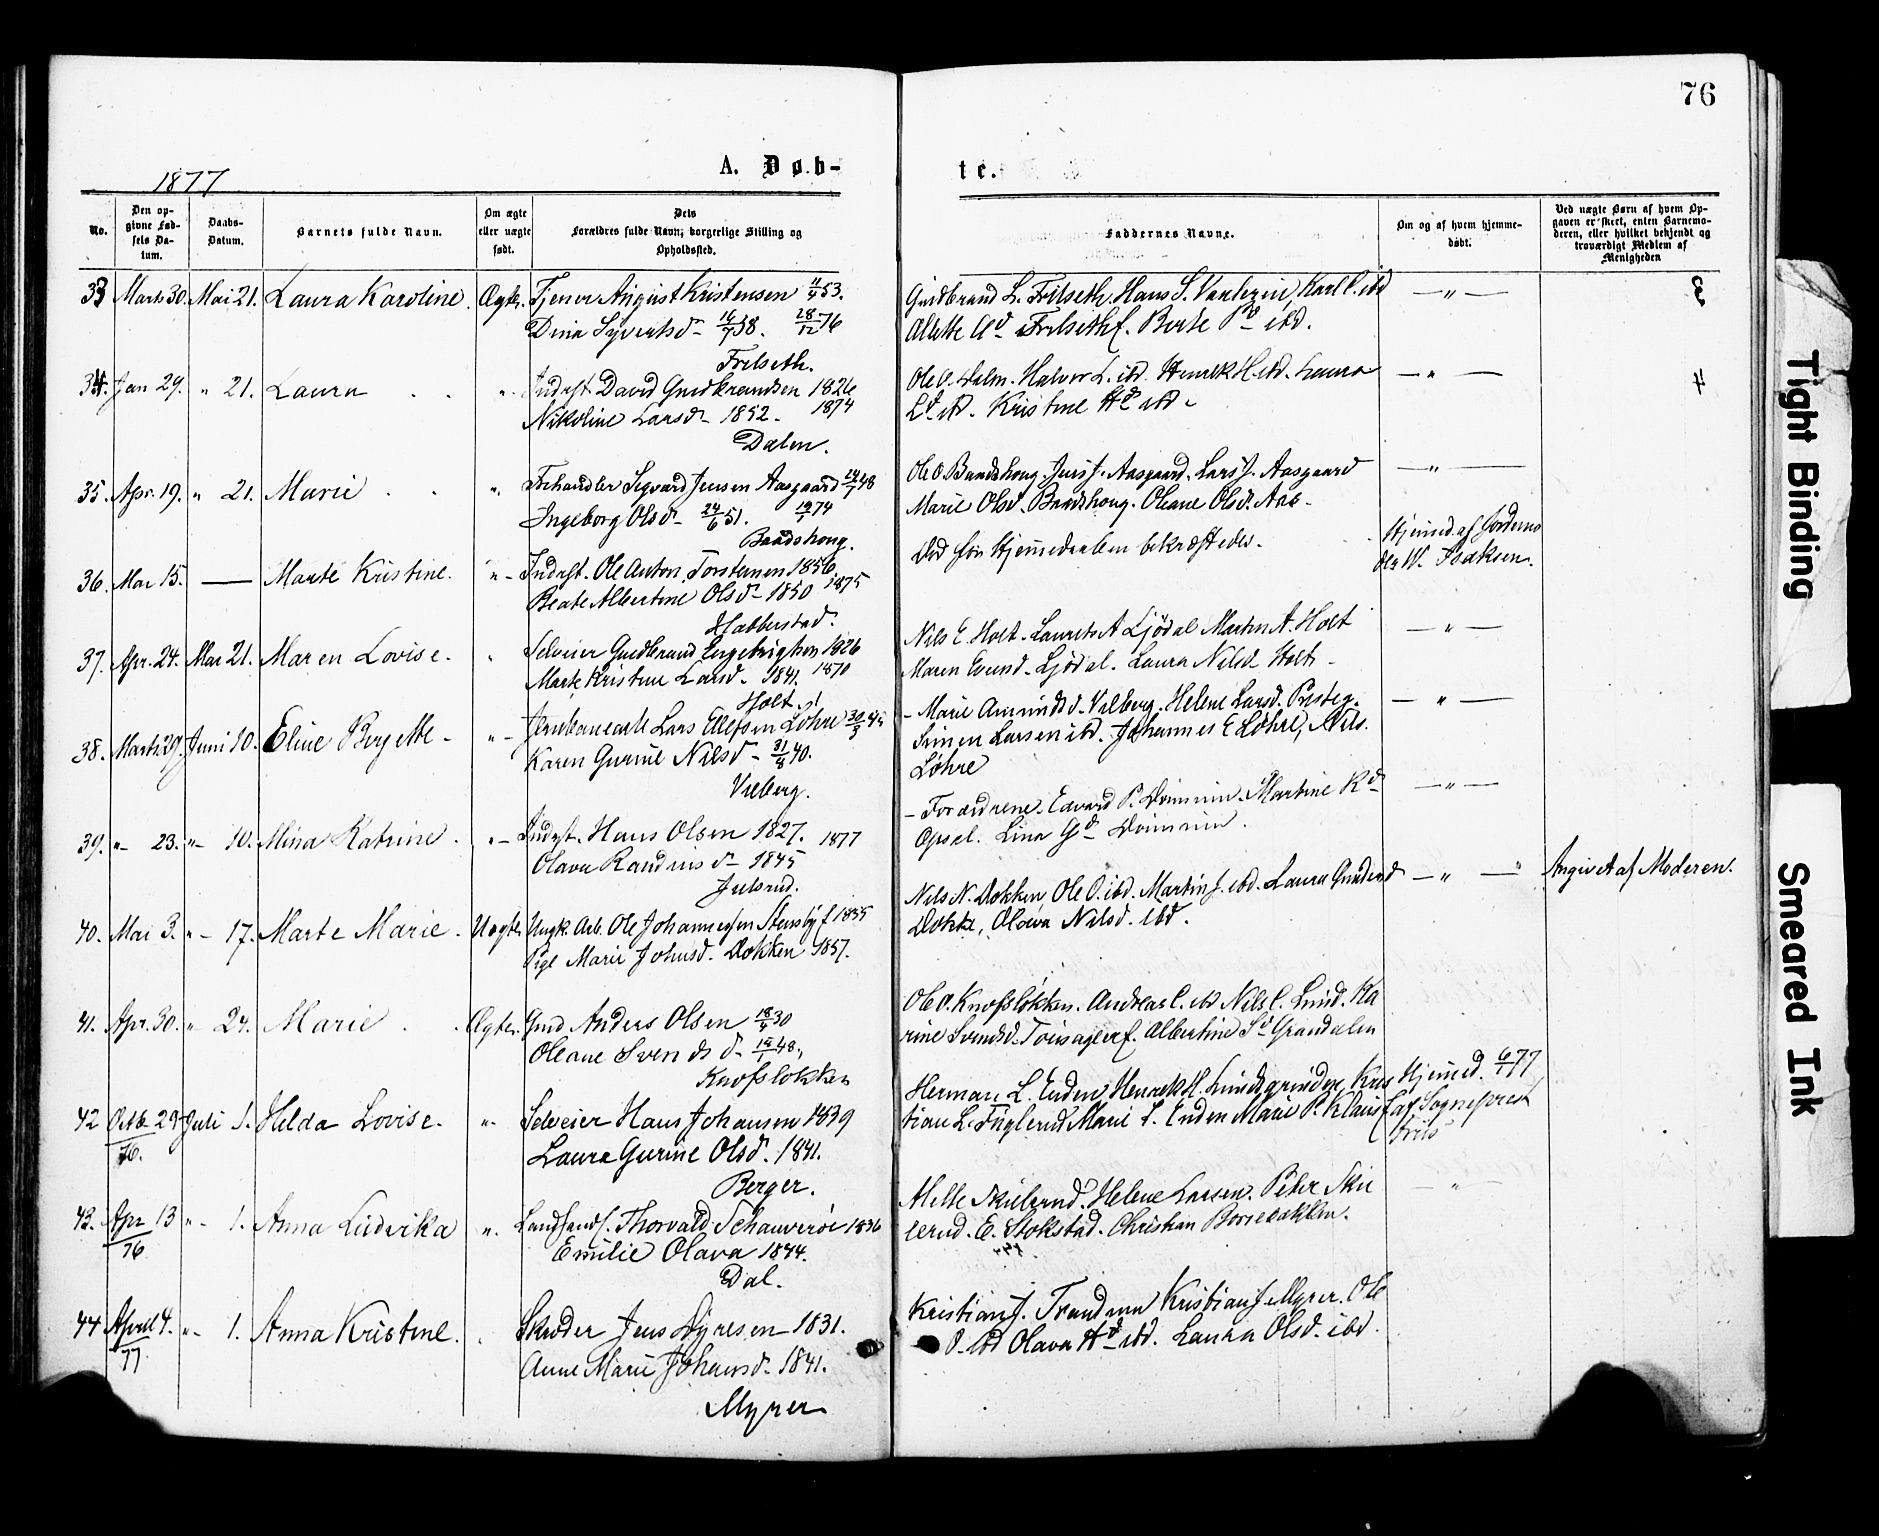 76
1877
A. Døb-
te.
No.
Den op-
givne Fød-
sels Da-
tum.
Daabs-
Datum.
Barnets fulde Navn.
Om ægte
eller uægte
født.
Dets
Forældres fulde Navn, borgerlige Stilling og
Opholdssted.
Faddernes Navne.
Om og af hvem hjemme-
døbt.
Ved uægte Børn af hvem Op-
gaven er skeet, enten Barnemo-
deren, eller hvilket bekjendt og
troværdigt Medlem af
Menigheden
33 Marts 30. Mai 21. Laura Karoline. Ægte. Tjener August Kristensen 53.
Dina Syvertsd 16/7 58. 28/12 76
Frilseth.
Gudbrand L. Frilseth, Hans S. Karl ibd — „ —
Alette Frilseth. Berte ibd.
34. Jan 29. „ 21. Laura „ Inderst. David Gudbrandsen 1826
Nikoline Larsd 1852. 1874
Dalen.
Ole O. Dalen. Halvor L. ibd. Henrik H. ibd. Laura — „ —
Ld ibd. Kristine Hd ibd.
35. Apr. 19. „ 21. Marie „ Sigvard Jensen Aasgaard 48
Ingeborg Olsd 24/6 51. 74
Baadshoug.
Ole O. Baadshoug. Jens J. Aasgaard. Lars J. Aasgaard — „ —
Marie Olsd. Baadshoug. Oleane Olsd. Aas
36. Mai 15. — Marte Kristine. „ Inderst. Ole Anton Torstensen 1856
Beate Albertine Olsd 1850 1875
Habberstad.
Død før Hjemmedaaben bekræftedes.
Hjemmed. af Jordemo
der W. Isaksen.
37. Apr. 24. Mai 21. Maren Lovise. „ Selveier Gudbrand Engebrigtsen 1826
Marte Kristine Larsd. 1841. 1870
Holt.
Nils E. Holt. Laurits A Ljødal Martin A. Holt — „ —
Maren Evensd. Ljødal. Laura Nilsd Holt
38. Marts 29. Juni 10. Eline Bergitte „ Lars Ellefsen Løhre 30/3 45
Karen Gurine Nilsd 31/8 40.
Vilberg.
Marie Amundsd. Vilberg. Helene Larsd. — „ —
Simen Larsen ibd. Johannes E Løhre, Nils.
Løhre
39. „ 23. „ 10. Mina Katrine. „ Inderst. Hans Olsen 1827. 1877
Olava Randine d 1845
Julsrud.
Forældrene. Edvard P. Martine Kd — „ —
Opsal. Lina Gd
40. Mai 3. „ 17. Marte Marie. Uægte. Ungk. Arb. Ole Johannesen Stensbyf 1855
Pige Marie Johnsd. Dokken 1857.
Nils N. Dokken, Ole O. ibd. Martin J. ibd. Laura Gundersd — „ — Angivet af Moderen.
Dokk, Olava Nilsd. ibd.
41. Apr. 30. „ 24. Marie Ægte. Gmd Anders Olsen 30
Oleane Svendsd 48,
Knofsløkken
Ole A. Knofsløkken. Andreas C. ibd Nils C. Lund. Ka
rine Svendsd. Albertine Sd Grandalen
42 Octb. 29 Juli 1. Helda Lovise. „ Selveier Hans Johansen 1839
76.
Laura Gurine Olsd. 1841.
Berger.
Herman L. Enden, Henrik H. Kris Hjemmed. 6/1 77
tian L. Fuglerud Marie L. Enden Marie P. af Sogneprest
43. Apr 13 „ 1. Anna Ludvika „ Landhandl. Thorvald 1836
76
Emilie Olava 1844.
Dal.
Helene Larsen. Peter — „ —
E. Stokstad. Christian
44 April 4. „ 1. Anna Kristine. „ Skræder Jens Dyresen 1831.
77
Anne Marie Johansd 1841.
Myrer
Kristian J. Kristian J. Myrer. Ole
O. ibd Olava Hd ibd. Laura Olsd. ibd.
Tight Binding
Smeared Ink